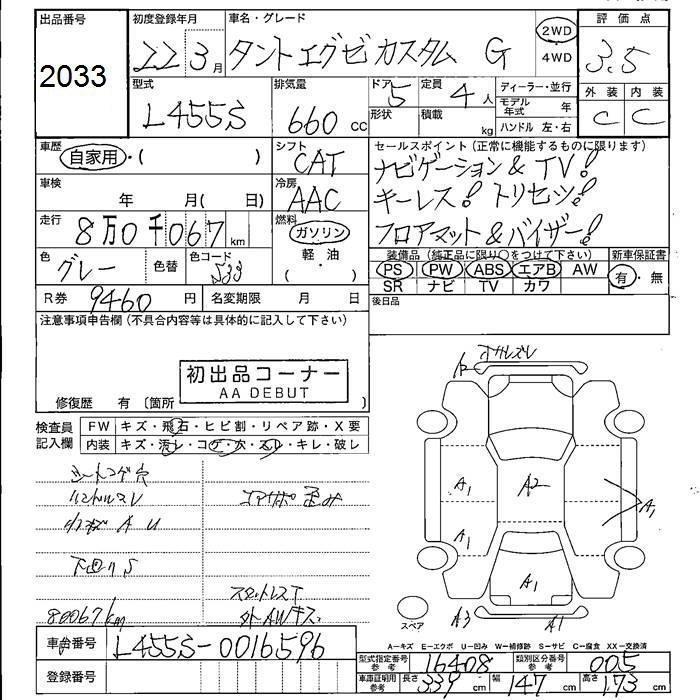 出品番号
2033
初度登録年月
22 3月
車名・グレード
タントエグゼカスタム G
2WD
・
4WD
評価点
3.5
外装 内装
C C
型式
L455S
排気量
660 cc
ドア
5
形状
定員
4人
積載
kg
ディーラー・並行
モデル年式 年
ハンドル 左・右
車歴
自家用・( )
シフト
CAT
車検
年 月( 日)
冷房
AAC
走行
8万0千067 km
燃料
ガソリン
・
軽油
( )
色
グレー
色替
色コード
S33
R券 9460円
名変期限 月 日
セールスポイント(正常に機能するものに限ります)
ナビゲーション & TV!
キーレス! トリセツ!
フロアマット & バイザー!
装備品(純正品に限り○をつけて下さい)
PS PW ABS エアB AW
SR ナビ TV カワ
新車保証書
有・無
後日品
注意事項申告欄(不具合内容等は具体的に記入して下さい)
初出品コーナー
AA DEBUT
修復歴 有〔箇所 〕
検査員
記入欄
FW キズ・飛石・ヒビ割・リペア跡・X要
内装 キズ・汚レ・コゲ・穴・スレ・キレ・破レ
シートコゲ穴
ハンドルスレ
コアサポ歪み
下回りS
スタットレスT
80067km
外AWキズ
A1
A2
A1
A1
A1
A3
A1
スペア
A-キズ E-エクボ U-凹み W-補修跡 S-サビ C-腐食 XX-交換済
車台番号 L455S-0016596
登録番号
型式指定番号
参考
16408
類別区分番号
参考
005
車庫証明用
参考
長さ 339 cm 幅 147 cm 高さ 173 cm